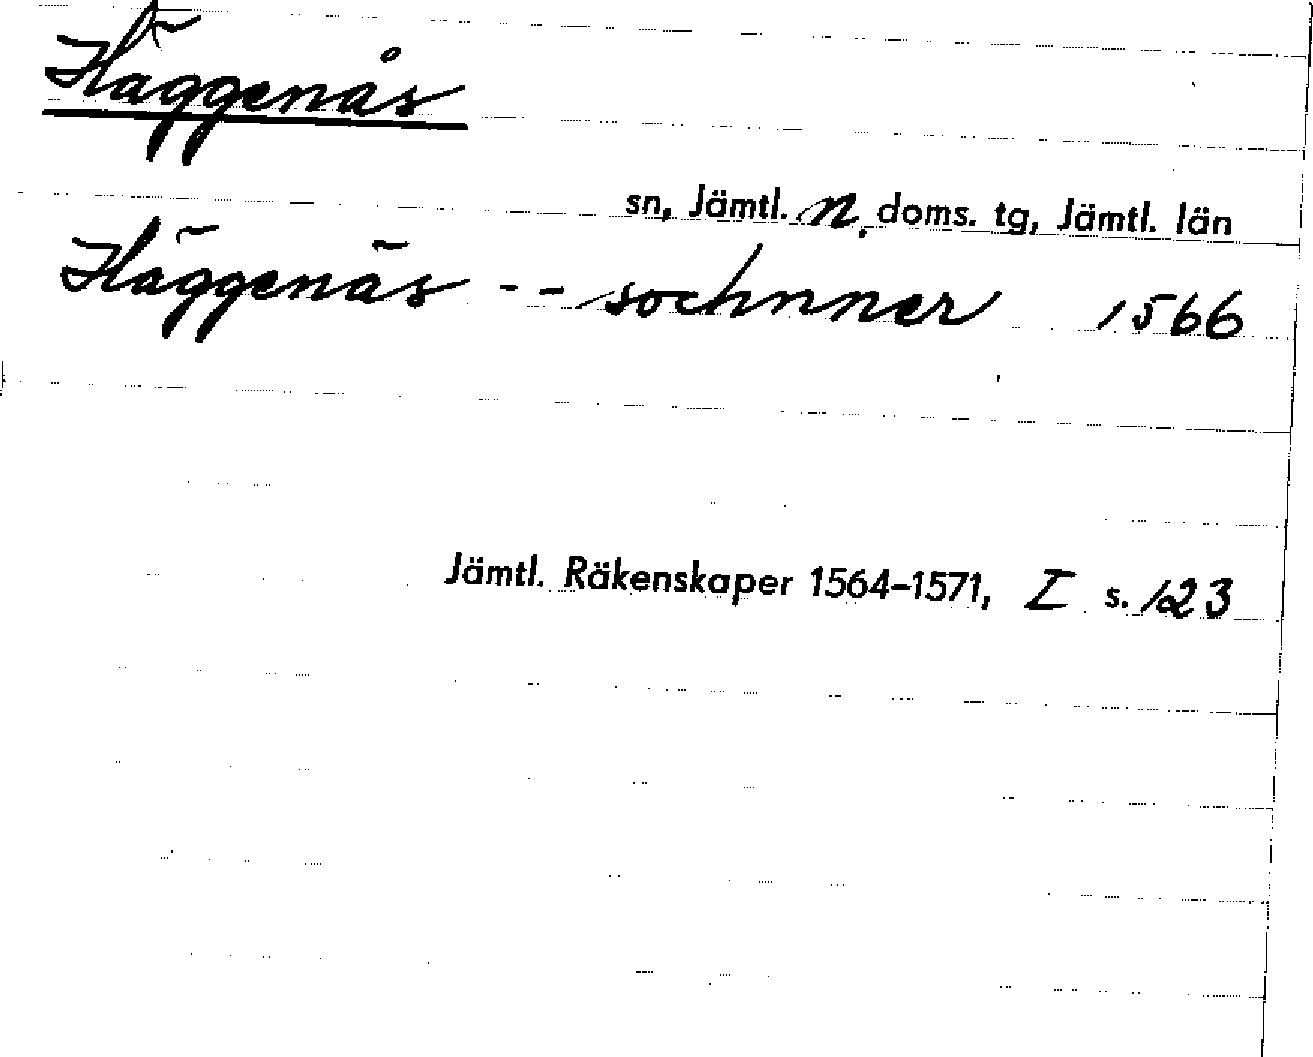 Häggenås
sn, Jämtl. n. doms. tg, Jämtl. län
Häggenäs -- sochnner 1566
Jämtl. Räkenskaper 1564-1571, I s. 123